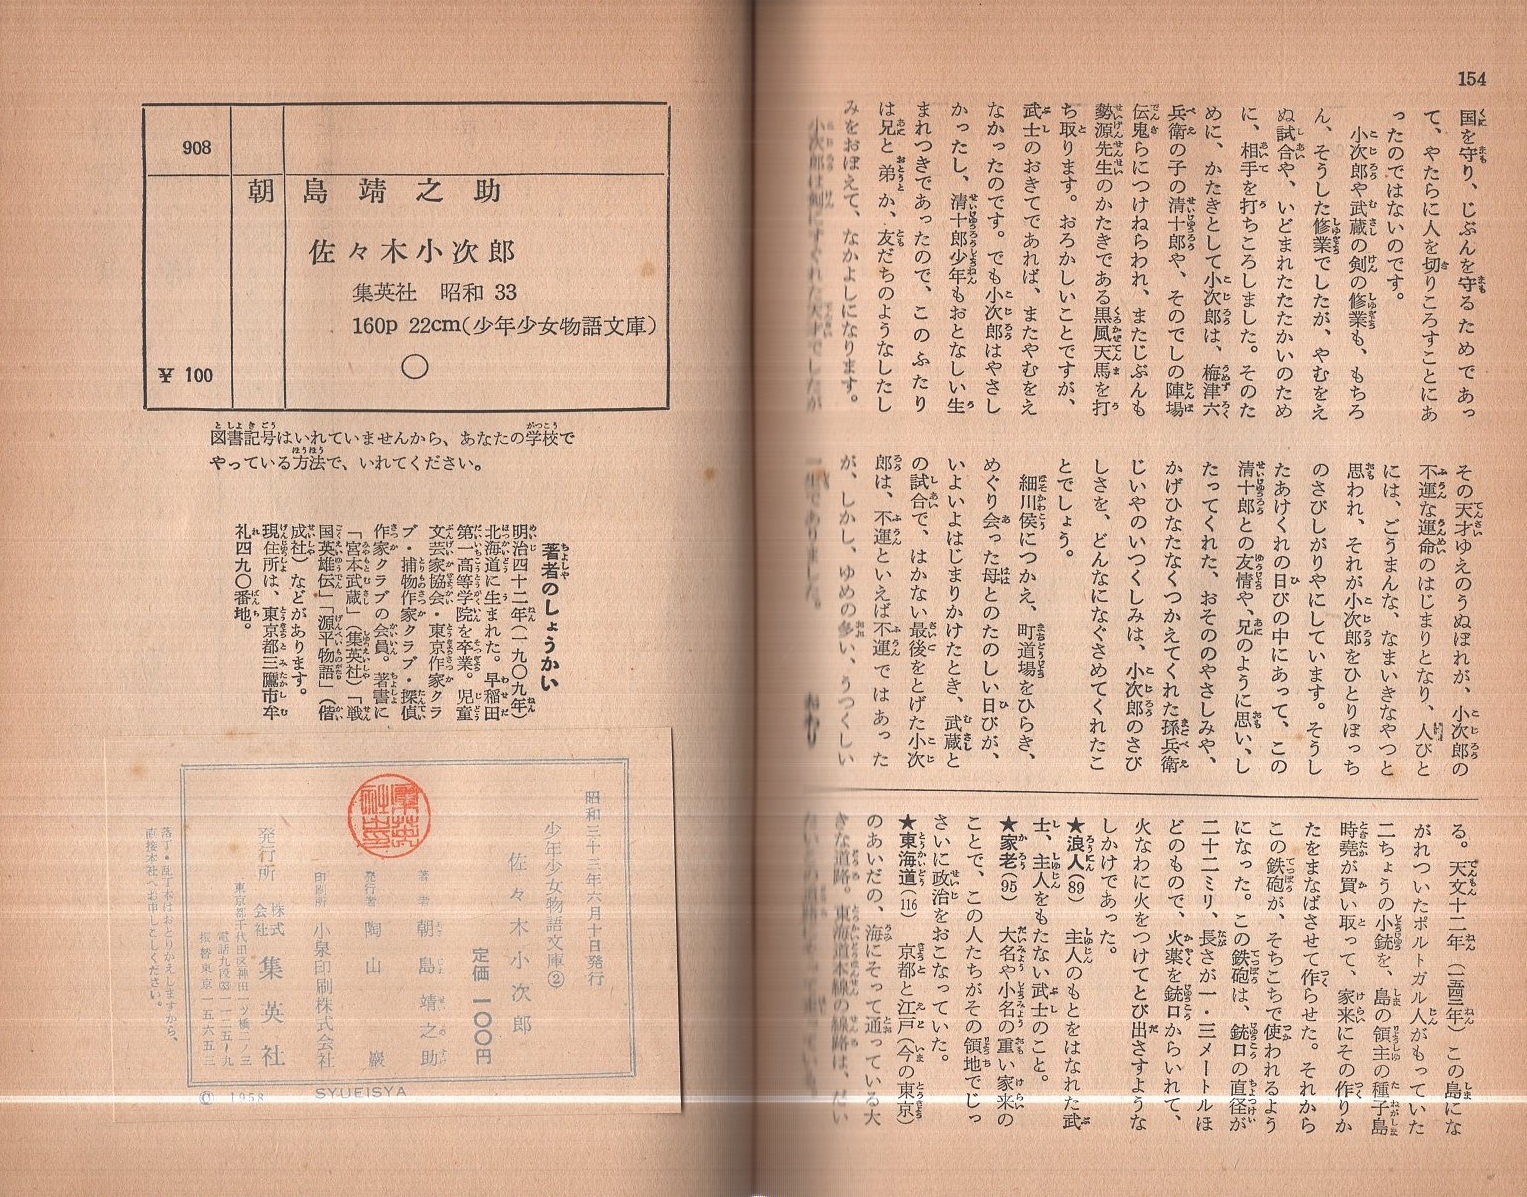 154
国を守り、じぶんを守るためであっ
て、やたらに人を切りころすことにあ
ったのではないのです。
小次郎や武蔵の剣の修業も、もちろ
ん、そうした修業でしたが、やむをえ
ぬ試合や、いどまれたたたかいのため
に、相手を打ちころしました。そのた
めに、かたきとして小次郎は、梅津六
兵衛の子の清十郎や、そのでしの陣場
伝鬼らにつけねらわれ、またじぶんも
勢源先生のかたきである黒風天馬を打
ち取ります。おろかしいことですが、
武士のおきてであれば、またやむをえ
なかったのです。でも小次郎はやさし
かったし、清十郎少年もおとなしい生
まれつきであったので、このふたり
は兄と弟か、友だちのようなしたし
みをおぼえて、なかよしになります。
小次郎は剣にすぐれた天才でしたが
その天才ゆえのうぬぼれが、小次郎の
不運な運命のはじまりとなり、人びと
には、ごうまんな、なまいきなやつと
思われ、それが小次郎をひとりぼっち
のさびしがりやにしています。そうし
たあけくれの日びの中にあって、この
清十郎との友情や、兄のように思い、し
たってくれた、おそののやさしみや、
かげひなたなくつかえてくれた孫兵衛
じいやのいつくしみは、小次郎のさび
しさを、どんなになぐさめてくれたこ
とでしょう。
細川侯につかえ、町道場をひらき、
めぐり会った母とのたのしい日びが、
いよいよはじまりかけたとき、武蔵と
の試合で、はかない最後をとげた小次
郎は、不運といえば不運ではあった
が、しかし、ゆめの多い、うつくしい
一生でありました。 おわり
る。天文十二年(一五四三年)この島にな
がれついたポルトガル人がもっていた
二ちょうの小銃を、島の領主の種子島
時堯が買い取って、家来にその作りか
たをまなばさせて作らせた。それから
この鉄砲が、そちこちで使われるよう
になった。この鉄砲は、銃口の直径が
二十二ミリ、長さが一・三メートルほ
どのもので、火薬を銃口からいれて、
火なわに火をつけてとび出さすような
しかけであった。
★浪人(89) 主人のもとをはなれた武
士、主人をもたない武士のこと。
★家老(95) 大名や小名の重い家来の
ことで、この人たちがその領地でじっ
さいに政治をおこなっていた。
★東海道(116) 京都と江戸(今の東京)
のあいだの、海にそって通っている大
きな道路。東海道本線の線路は、だい
908
朝島靖之助
佐々木小次郎
集英社 昭和33
160p 22cm(少年少女物語文庫)
¥ 100
図書記号はいれていませんから、あなたの学校で
やっている方法で、いれてください。
著者のしょうかい
明治四十二年(一九〇九年)
北海道に生まれた。早稲田
第一高等学院を卒業。児童
文芸家協会・東京作家クラ
ブ・捕物作家クラブ・探偵
作家クラブの会員。著書に
「宮本武蔵」(集英社)「戦
国英雄伝」「源平物語」(偕
成社)などがあります。
現住所は、東京都三鷹市牟
礼四九〇番地。
昭和三十三年六月十日発行
少年少女物語文庫②
佐々木小次郎
定価 一〇〇円
著者 朝島靖之助
発行者 陶山巌
印刷所 小泉印刷株式会社
発行所 株式会社 集英社
東京都千代田区神田一ツ橋二ノ三
振替東京一五六五三
落丁・乱丁本はおとりかえしますから、
直接本社へお申しこしください。
© 1958
SYUEISYA